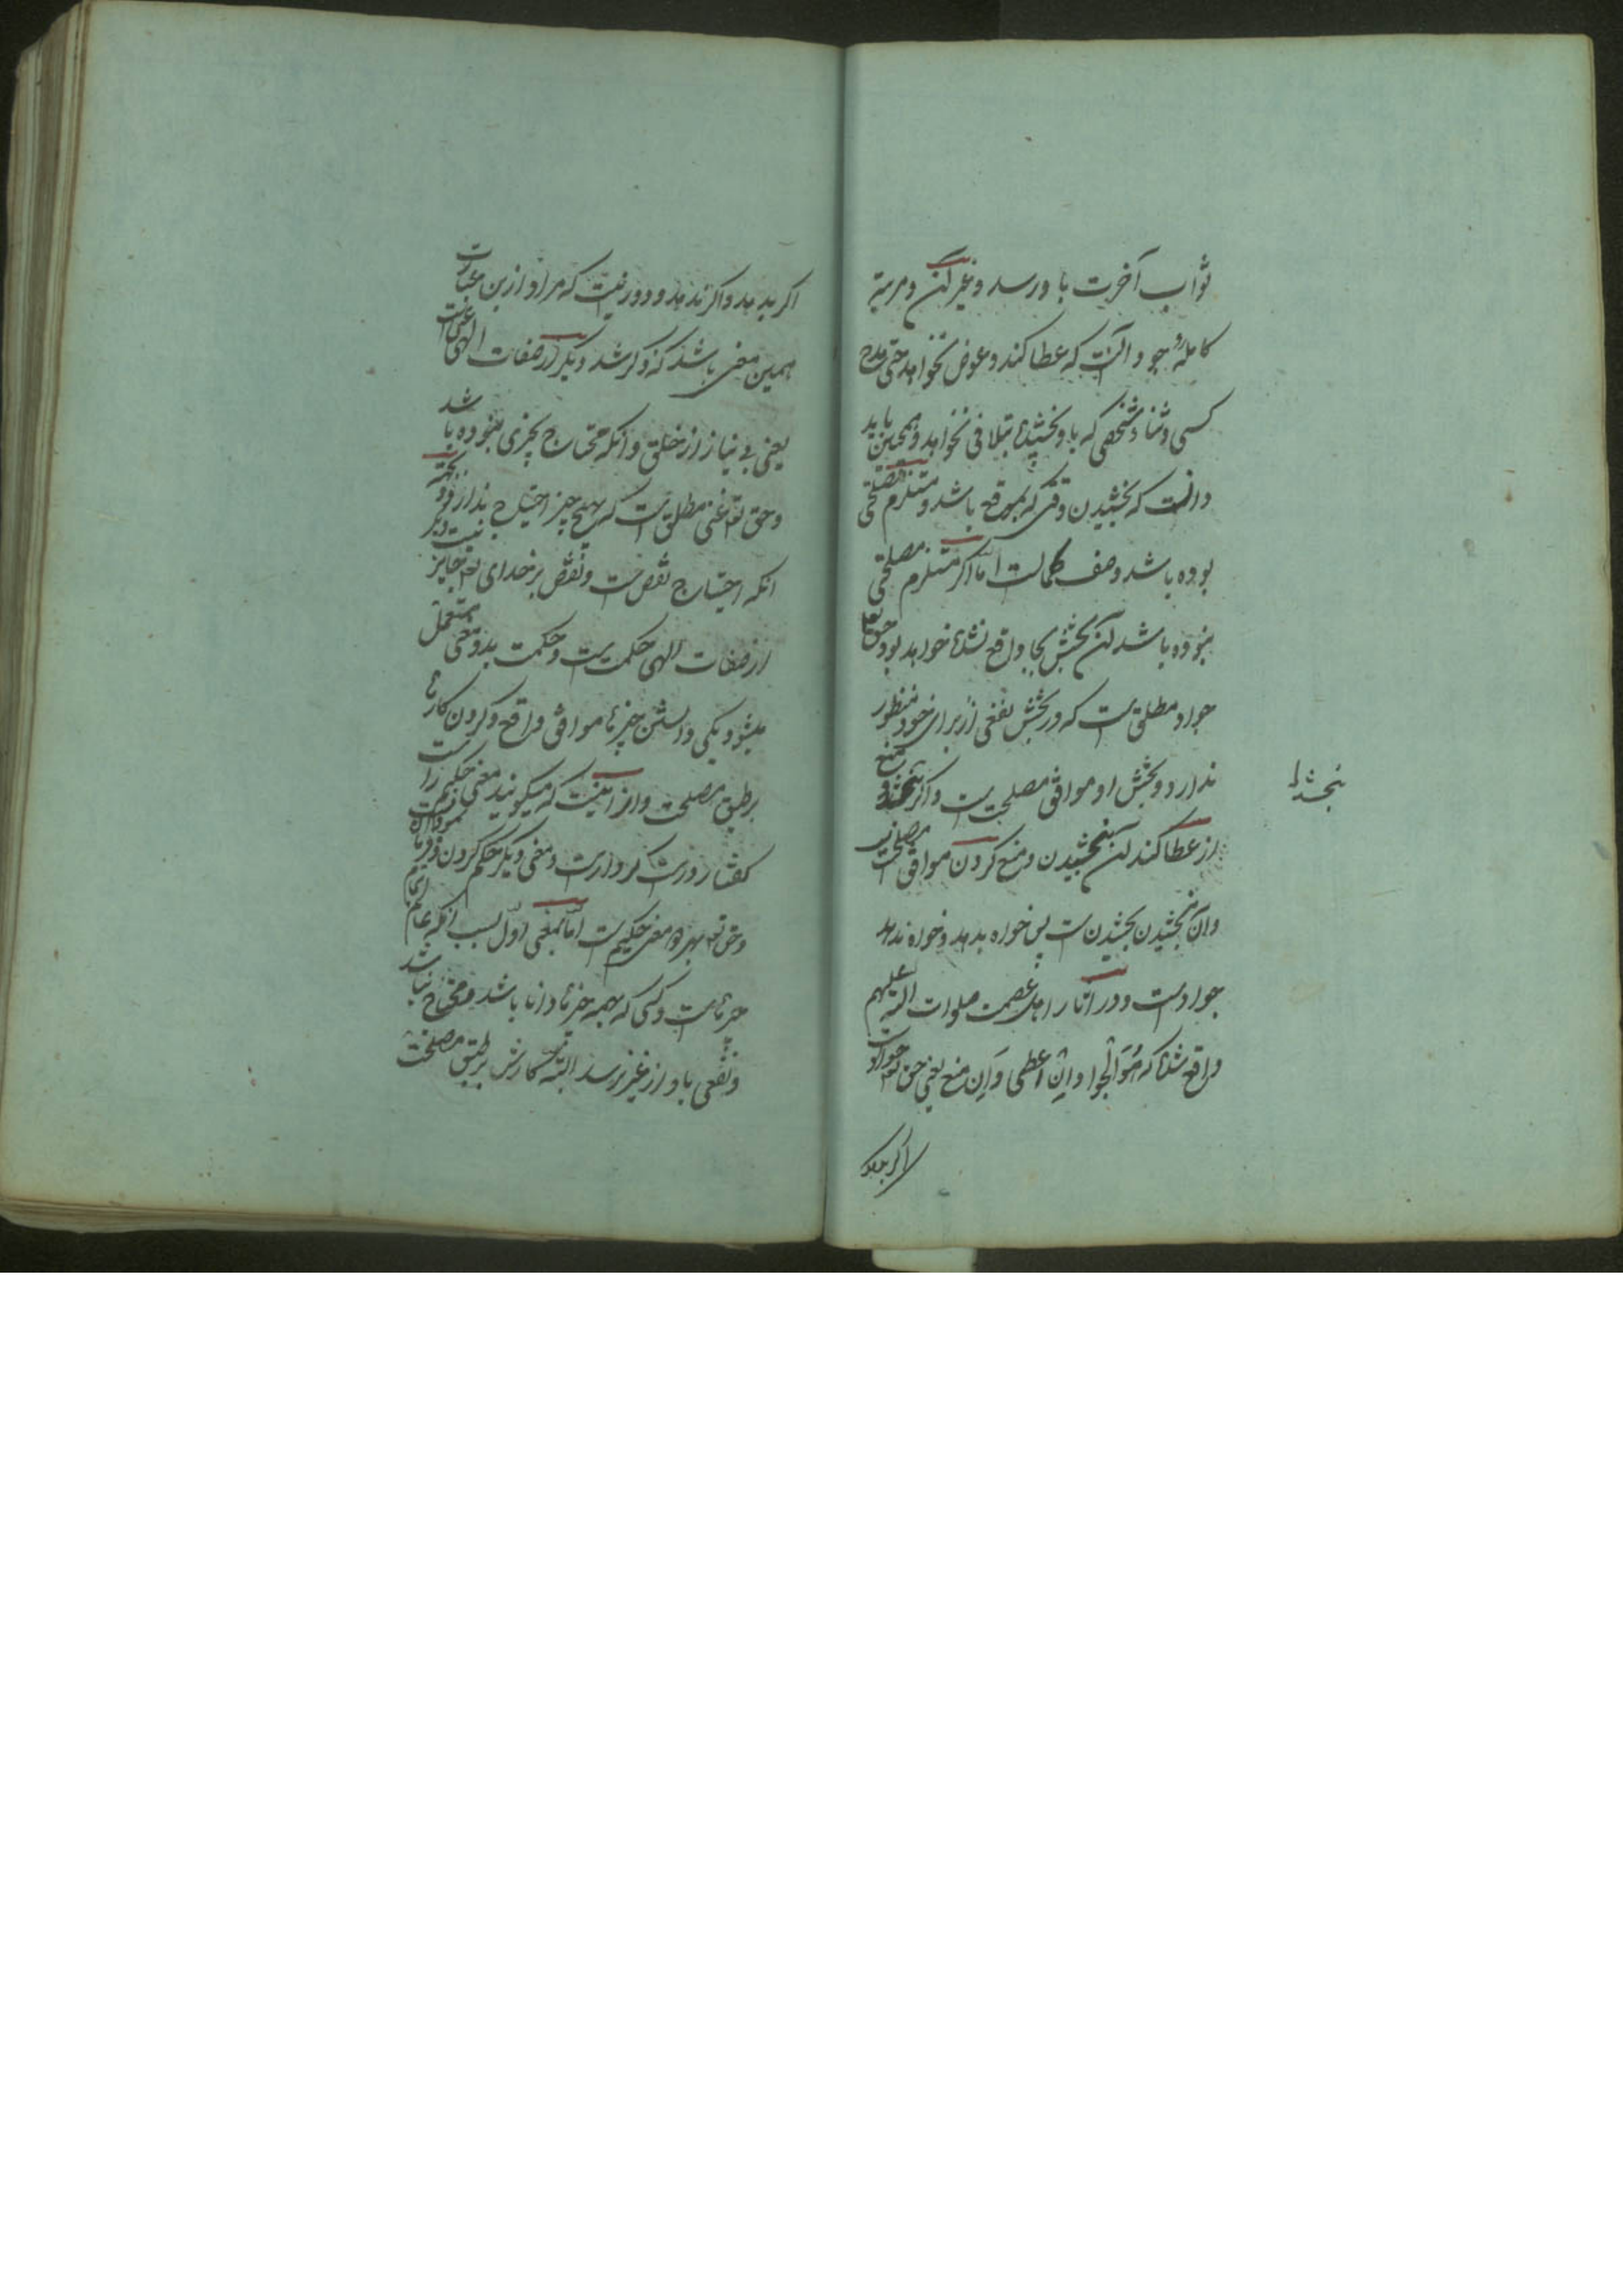 ثواب آخرت باو رسد و غیر آن و مرتبهٔ
کاملهٔ جود آنست که عطا کند و عوض نخواهد حتی مدح
کسی و ثنا و شخصی که باو بخشیده تلافی نخواهد و همچنین باید
دانست که بخشیدن وقتی که بموقع باشد و مستلزم مصلحتی
بوده باشد وصف کمالست اما اگر مستلزم مصلحتی
نبوده باشد آن بخشش بیجا واقع شده خواهد بود و حق تعالی
جواد مطلق است که در بخشش نفعی از برای خود منظور
ندارد و بخشش او موافق مصلحت است و اگر نبخشد و منع
نبخشد
از عطا کند آن نبخشیدن و منع کردن موافق مصلحت است
و آن نبخشیدن بخشیدن است پس خواه بدهد و خواه ندهد
جواد است و در آثار اهل عصمت صلوات الله علیهم
واقع شده که هُوَ الْجواد وَاِنْ اعطی وَاِن منع یعنی حق تعه جواد است
اگر بدهد
اگر بدهد و اگر ندهد و دور نیست که مراد ازین عبارت
همین معنی باشد که ذکر شد دیگر از صفات الهی غنی است
یعنی بی نیاز از خلق و آنکه محتاج بچیزی نبوده باشد
و حق تعه غنی مطلق است که بهیچ چیز احتیاج ندارد بجهة
آنکه احتیاج نقص است و نقص بر خدای تعه جایز نیست و دیگر
از صفات الهی حکمت است و حکمت بدو معنی مستعمل
میشود یکی دانستن چیزها موافق واقع و کردن کارها
بر طبق مصلحت و از اینست که میگویند معنی حکیم راست
گفتار درست کردار است و معنی دیگر محکم کردن
و حق تعه بهر دو معنی حکیم است اما بمعنی اول بسبب آنکه عالم
چیزهاست و کسی که بهمه چیزها دانا باشد و محتاج نباشد
و نفعی باو از غیر نرسد البته کارش بر طبق مصلحت